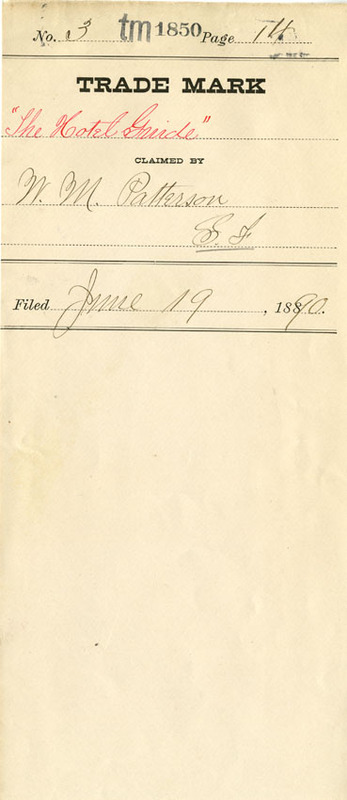 No. 3 tm 1850 Page 74
TRADE MARK
"The Hotel Guide"
CLAIMED BY
W. M. Patterson
S. F
Filed June 19, 1890.